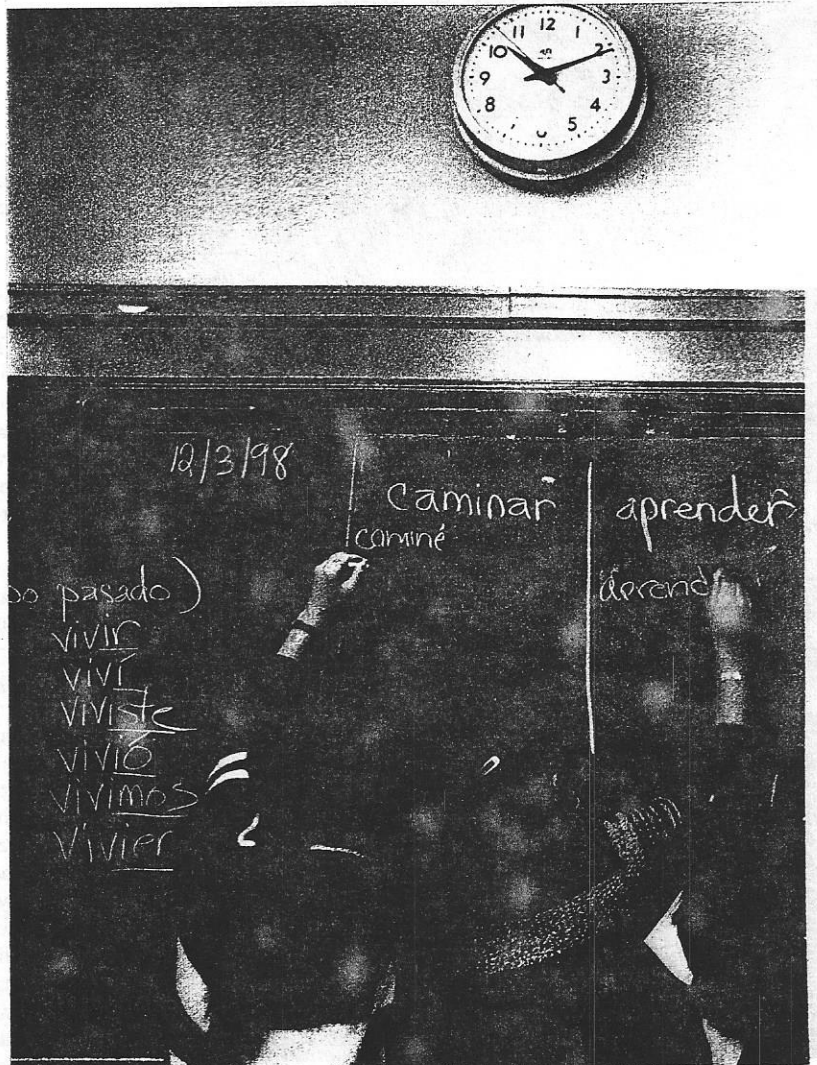 11 12 1
10 2
9 3
8 4
5
12/3/98
caminar
caminé
aprender
aprend
po pasado)
vivir
viví
viviste
vivió
vivimos
vivier